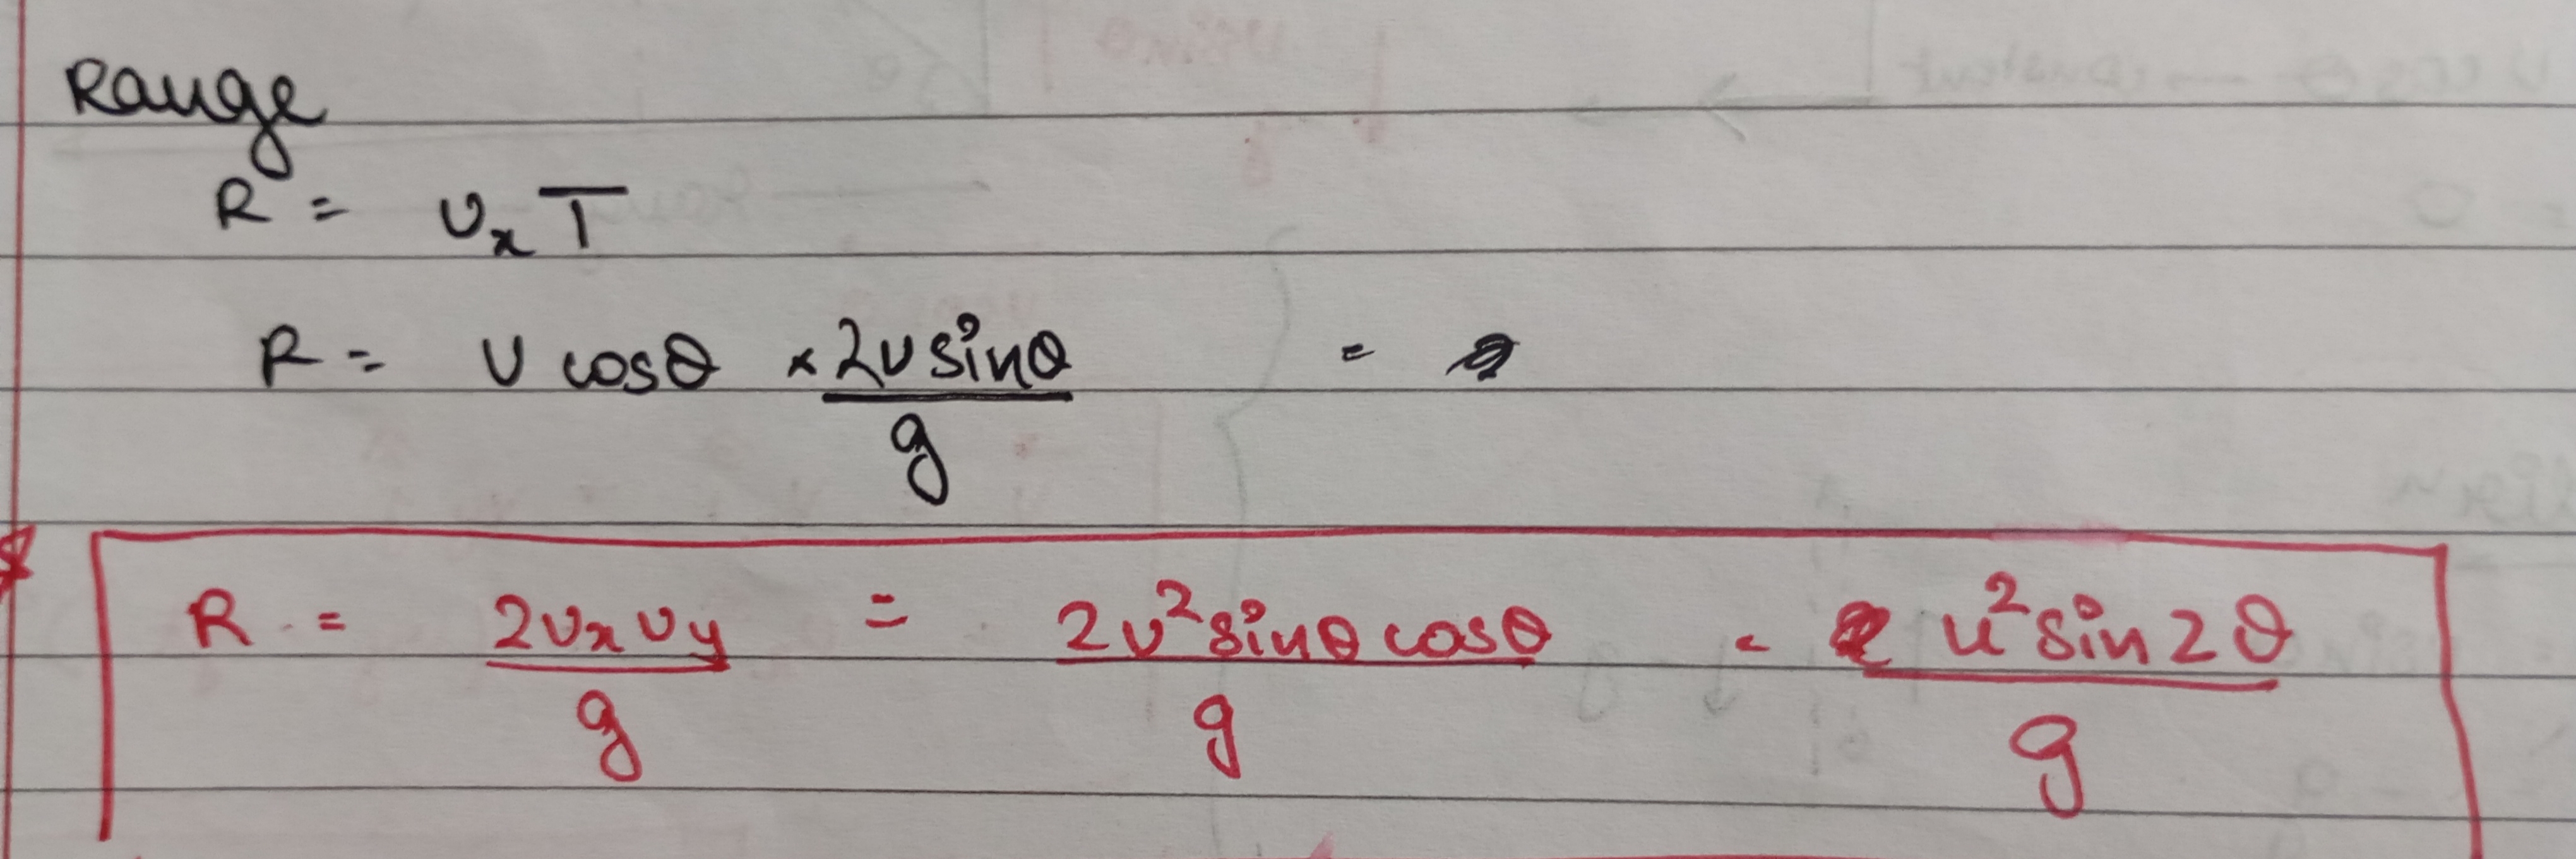 Range
R = uₓ T
R = u cosθ × 2u sinθ / g =
R = 2uₓ u_y / g = 2u² sinθ cosθ / g = u² sin 2θ / g